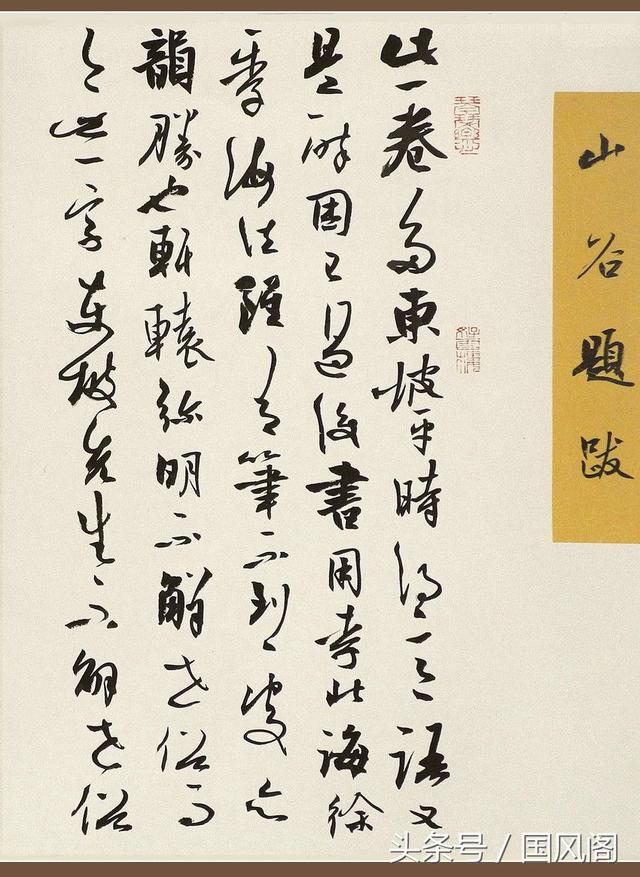 山谷題跋
此一卷多東坡平時得意語又
是醉困已過後書用李北海徐
季海法雖有筆不到處亦
韻勝也軒轅彌明不解世俗書
而無一字東坡先生不解世俗
头条号 / 国风阁